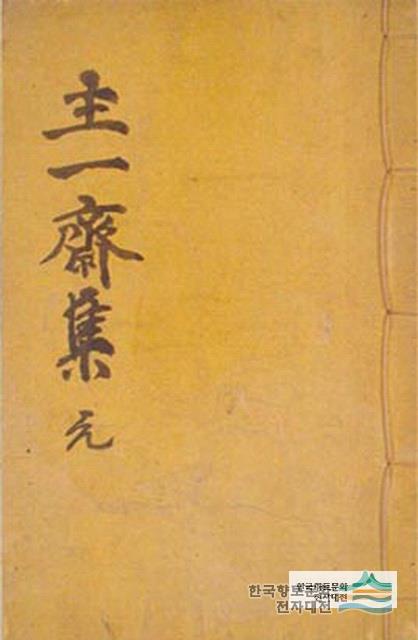 主一齋集 元
한국향토문화
전자대전
한국향토문화
전자대전